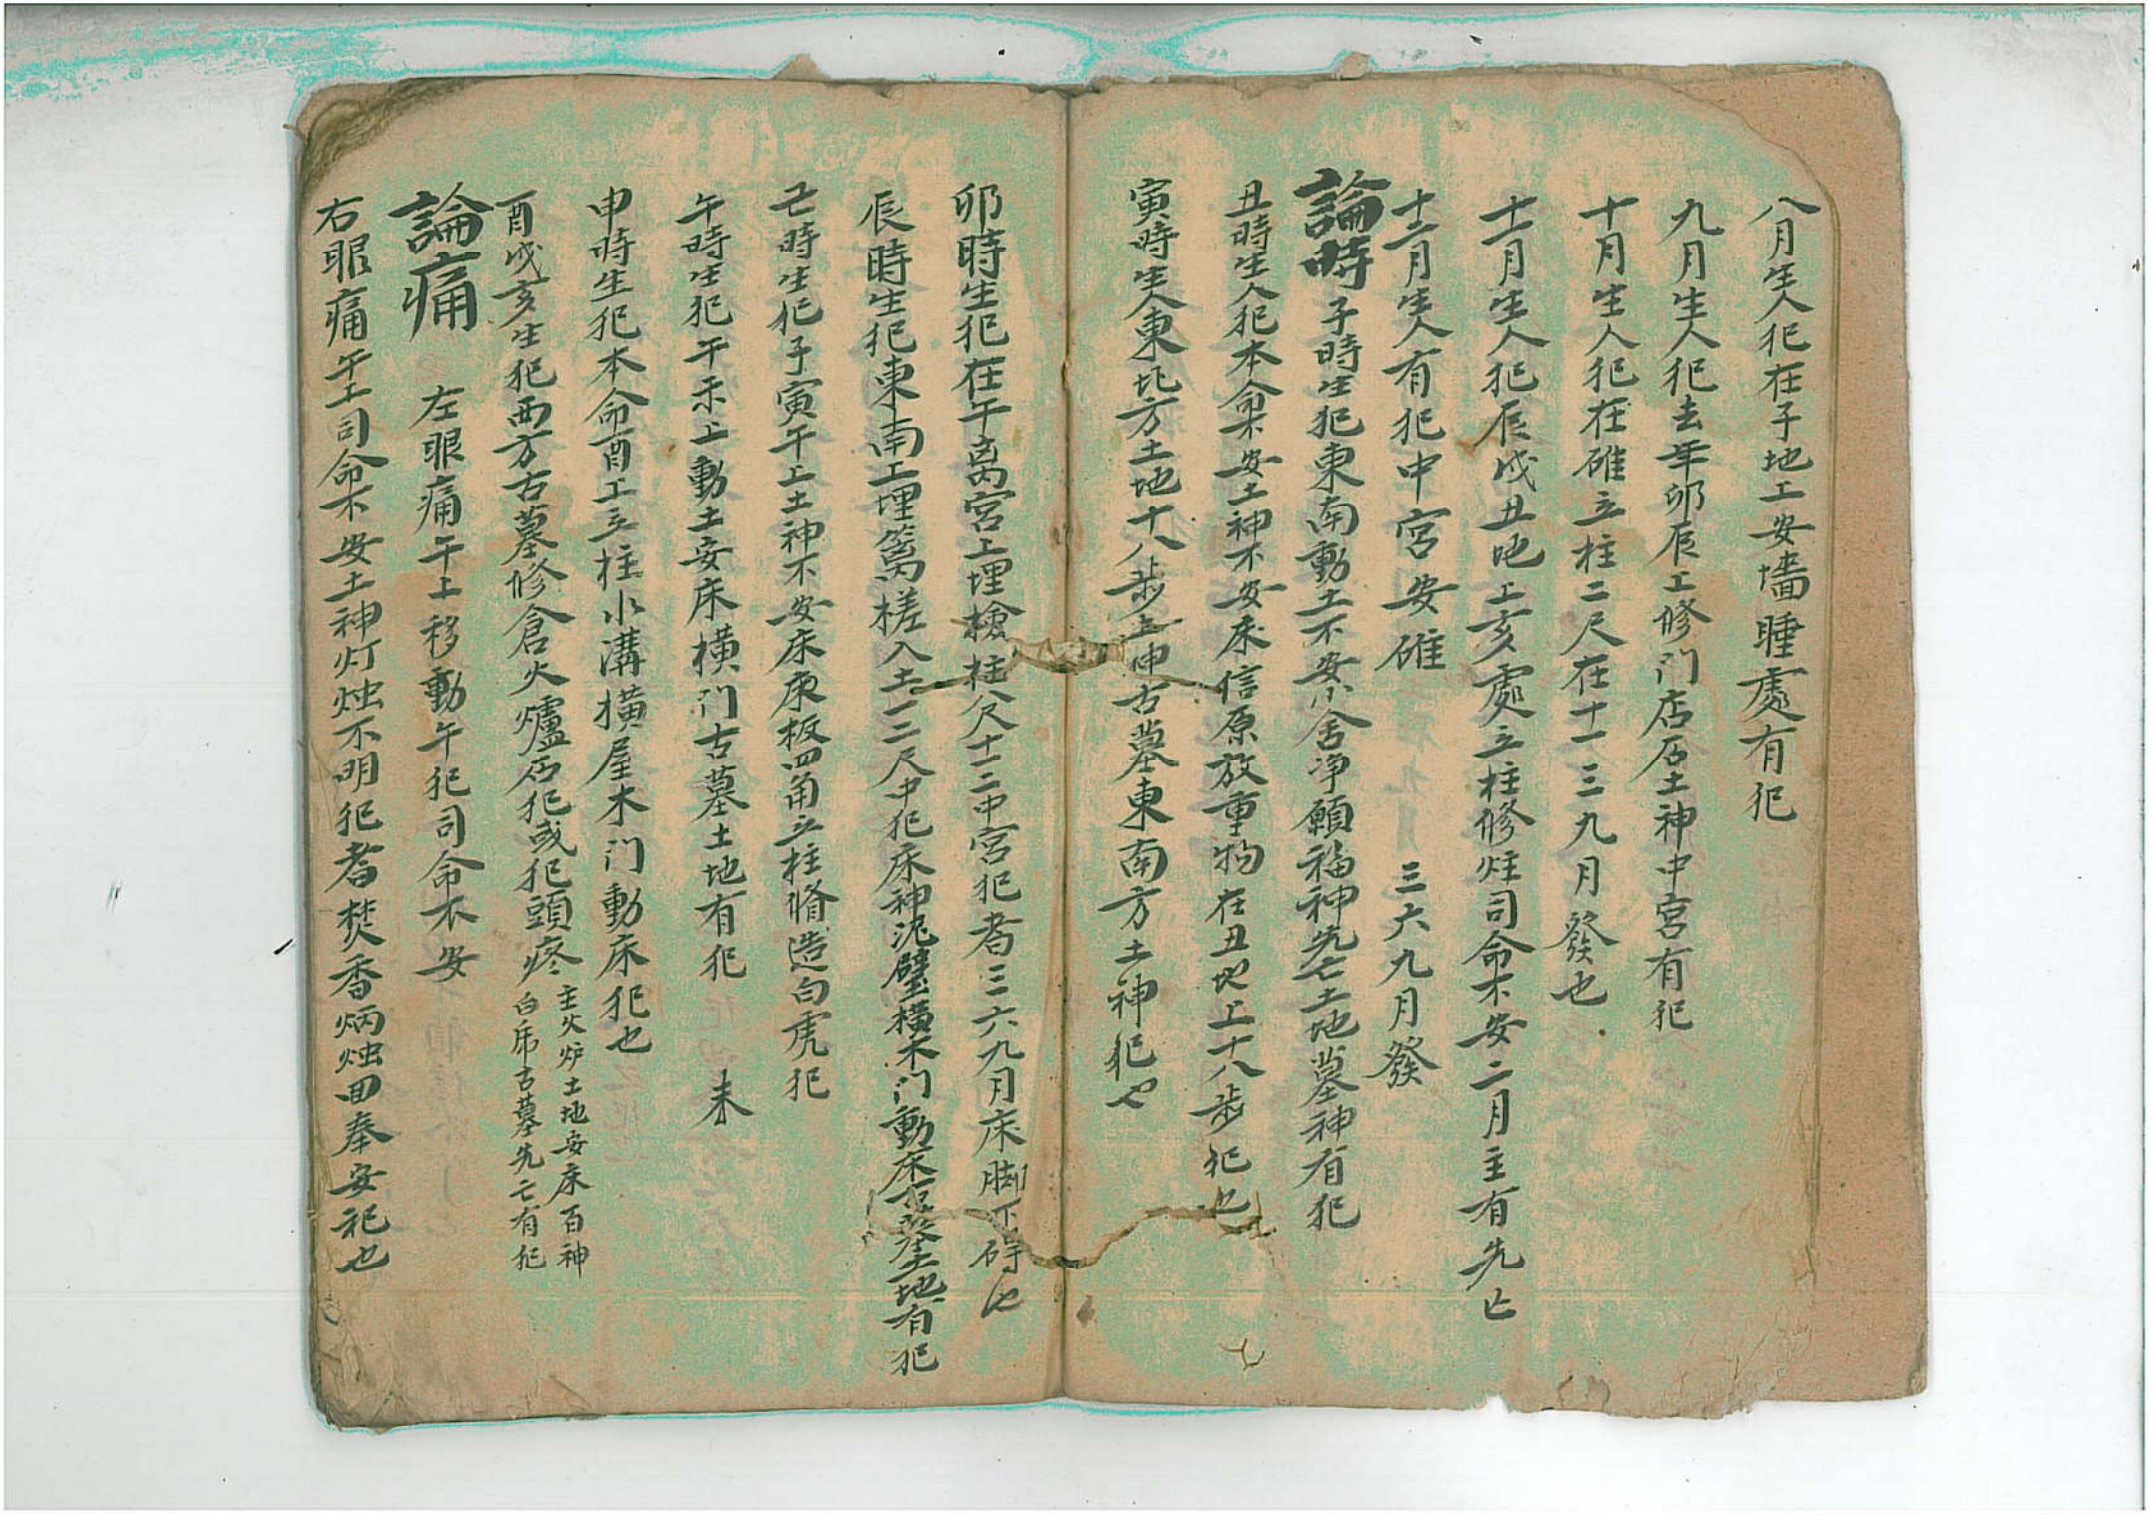 八月生人犯在子地工安墻腄處有犯
九月生人犯去年卯辰工修门店石土神中宮有犯
十月生人犯在碓立柱二尺在十一三九月發也
十一月生人犯辰戌丑地工亥處立柱修灶司命不安二月主有先亡
十二月生人有犯中宮安碓 三六九月發
論時 子時生犯東南動土不安小舍净願福神先亡土地墓神有犯
丑時生人犯本命不安土神不安床信原放重物在丑地上十八步犯也
寅時生人東北方土地十八步上申古墓東南方土神犯也
卯時生犯在午离宮上埋檢柱八尺十二中宮犯者三六九月床脚不碍也
辰時生犯東南工埋篱槎入土一二尺中犯床神泥壁橫木门動床古墓土地有犯
巳時生犯子寅午上土神不安床床板四角立柱修造白虎犯
午時生犯午未上動土安床横门古墓土地有犯 未
申時生犯本命酉工立柱水溝横屋木门動床犯也
酉戌亥生犯西方古墓修倉火爐石犯或犯頭疼
主火炉土地安床百神
白虎古墓先亡有犯
論痛 左眼痛午上移動午犯司命不安
右眼痛午工司命不安土神灯烛不明犯者焚香炳烛回奉安祀也